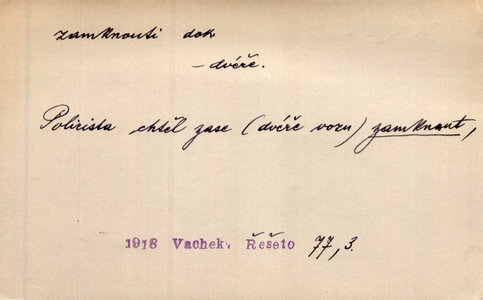 zamknouti dok
– dvéře.
Policista chtěl zase (dvéře vozu) zamknout,
1918 Vachek. Řešeto 77,3.